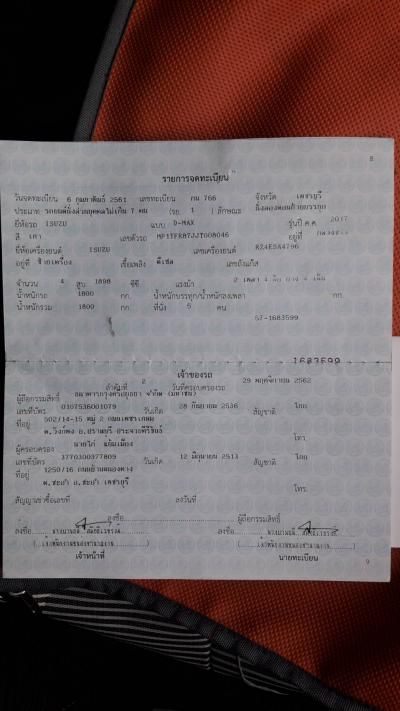 8
รายการจดทะเบียน
วันจดทะเบียน 6 กุมภาพันธ์ 2561 เลขทะเบียน กน 766 จังหวัด เพชรบุรี
ประเภท รถยนต์นั่งส่วนบุคคลไม่เกิน 7 คน (รย. 1 ) ลักษณะ นั่งสองตอนท้ายบรรทุก
ยี่ห้อรถ ISUZU แบบ D-MAX รุ่นปี ค.ศ. 2017
สี เทา เลขตัวรถ MP1TFR87JJT008046 อยู่ที่
ยี่ห้อเครื่องยนต์ ISUZU เลขเครื่องยนต์ RZ4ESA4796
อยู่ที่ ซ้ายเครื่อง เชื้อเพลิง ดีเซล เลขถังแก๊ส
จำนวน 4 สูบ 1898 ซีซี แรงม้า 2 เพลา 4 ล้อ ยาง 4 เส้น
น้ำหนักรถ 1800 กก. น้ำหนักบรรทุก/น้ำหนักลงเพลา กก.
น้ำหนักรวม 1800 กก. ที่นั่ง 5 คน
57-1683599
1683599
เจ้าของรถ
ลำดับที่ 2 วันที่ครอบครองรถ 29 พฤศจิกายน 2562
ผู้ถือกรรมสิทธิ์ ธนาคารกรุงศรีอยุธยา จำกัด (มหาชน)
เลขที่บัตร 0107536001079 วันเกิด 28 กันยายน 2536 สัญชาติ ไทย
ที่อยู่ 502/14-15 หมู่ 2 ถนนเพชรเกษม
ต.วังก์พง อ.ปราณบุรี ประจวบคีรีขันธ์
โทร.
ผู้ครอบครอง นายไก่ แย้มเมือง
เลขที่บัตร 3770300377809 วันเกิด 12 มิถุนายน 2513 สัญชาติ ไทย
ที่อยู่ 1250/16 ถนนบ้านหนองตาง
ต.ชะอำ อ.ชะอำ เพชรบุรี
โทร.
สัญญาเช่าซื้อเลขที่ ลงวันที่
ลงชื่อ ผู้ถือกรรมสิทธิ์
ลงชื่อ ลงชื่อ
(เจ้าพนักงานขนส่งชำนาญงาน) (เจ้าพนักงานขนส่งชำนาญงาน)
เจ้าหน้าที่ นายทะเบียน
9